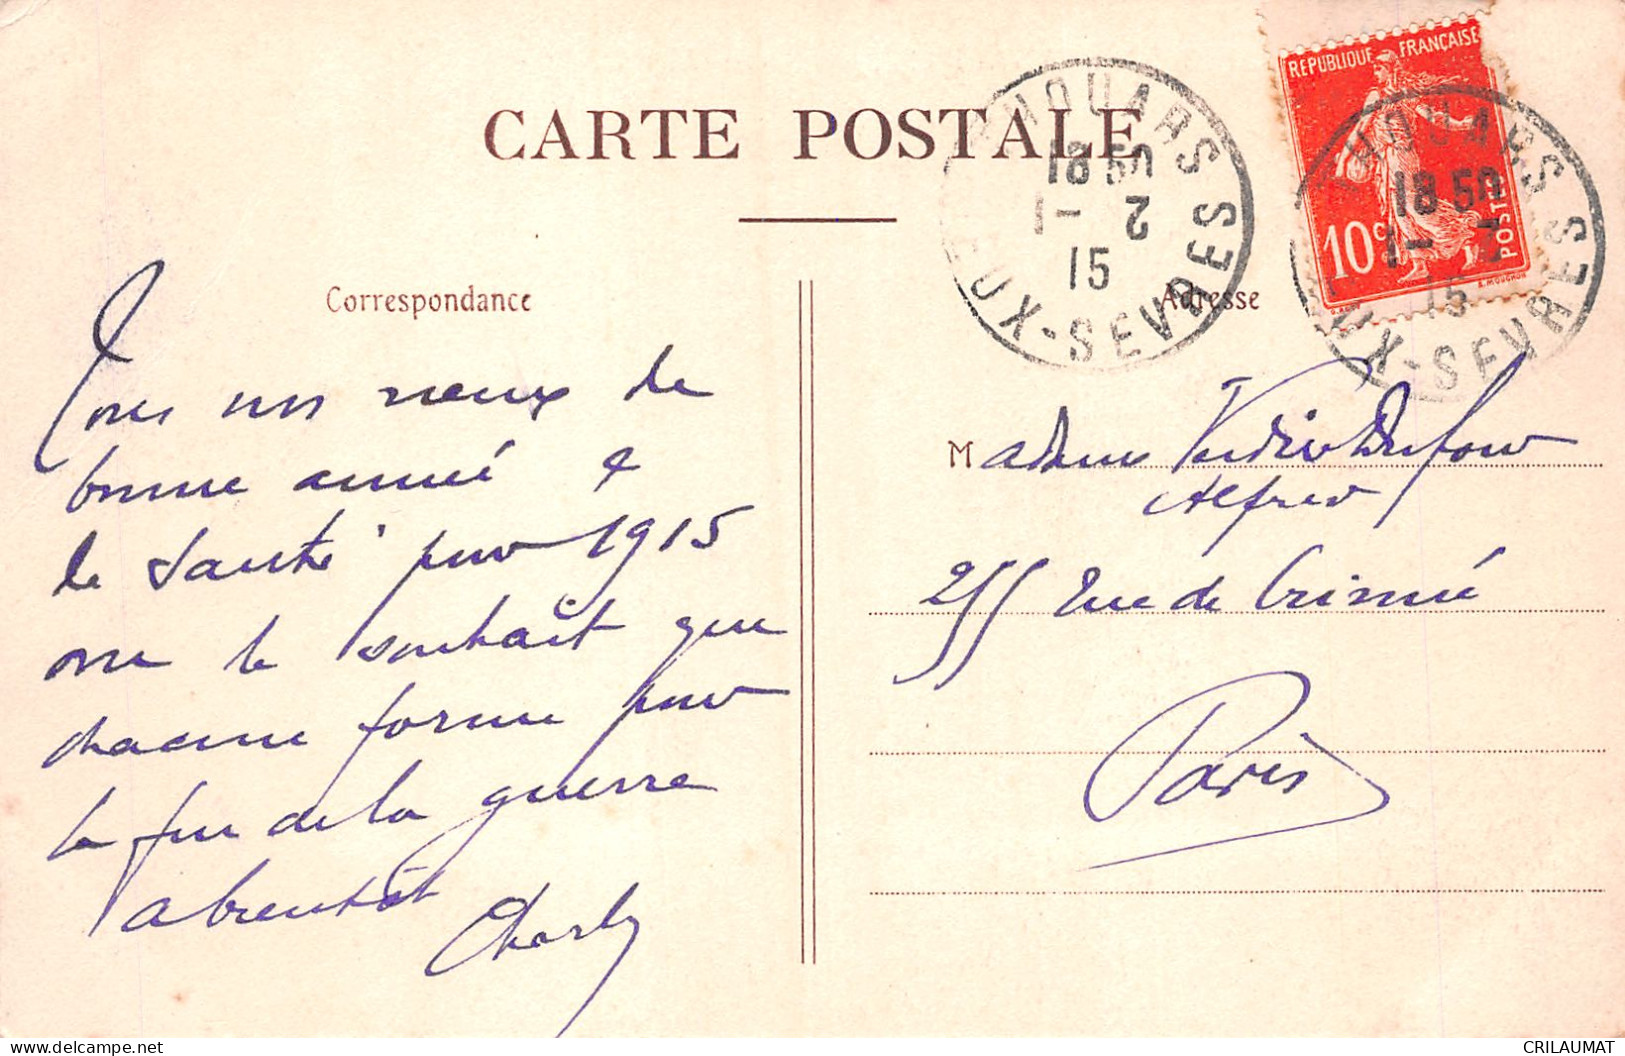 CARTE POSTALE
Correspondance
Tous nos vœux de
bonne année &
de santé pour 1915
one le souhait que
chacune forme pour
la fin de la guerre
a bientôt
Charly
THOUARS
18 50
1 - 2
15
DEUX-SEVRES
REPUBLIQUE FRANÇAISE
10c
POSTES
THOUARS
18 50
1 - 2
15
DEUX-SEVRES
Adresse
Madame Dufour
Alfred
255 Rue de Crimée
Paris
CRILAUMAT